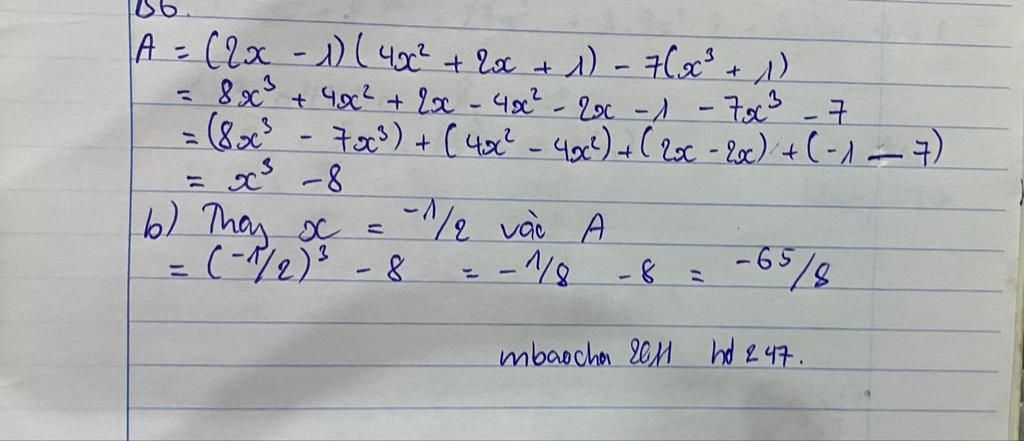 B6.
A = (2x - 1)(4x² + 2x + 1) - 7(x³ + 1)
= 8x³ + 4x² + 2x - 4x² - 2x - 1 - 7x³ - 7
= (8x³ - 7x³) + (4x² - 4x²) + (2x - 2x) + (-1 - 7)
= x³ - 8
b) Thay x = -1/2 vào A
= (-1/2)³ - 8 = -1/8 - 8 = -65/8
mbaocha 2011 hd 247.